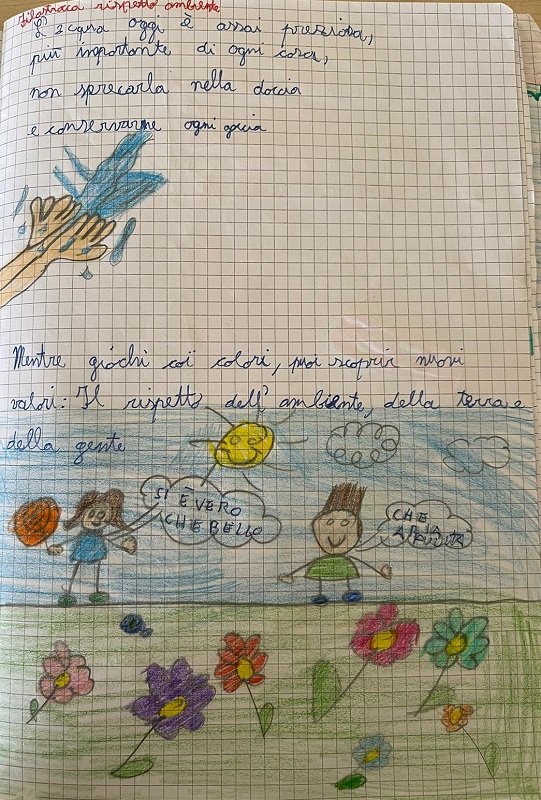 filastrocca rispetto ambiente
L'acqua oggi è assai preziosa,
più importante di ogni cosa,
non sprecarla nella doccia
e conservarne ogni goccia
Mentre giochi coi colori, puoi scoprir nuovi
valori: Il rispetto dell'ambiente, della terra e
della gente
SI È VERO
CHE BELLO
CHE
ARIA
PULITA